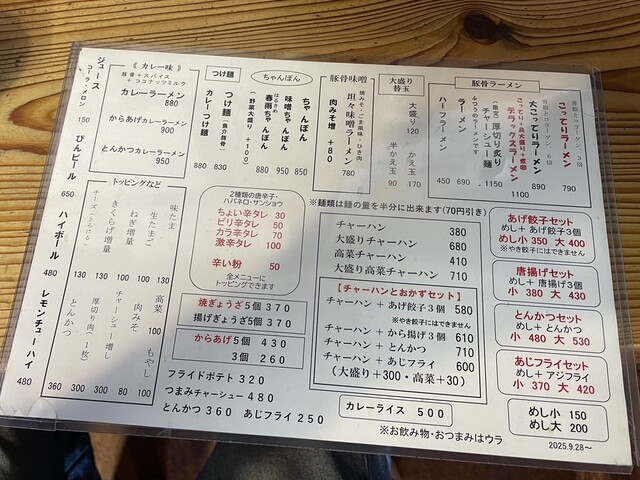 豚骨ラーメン
こってりラーメン 790
背脂とコラーゲン、3倍
大こってりラーメン 890
背脂とコラーゲン、6倍
こってり・具大盛り・煮卵
デラックスラーメン 1100
(限定)厚切り炙り
チャーシュー麺 1150
ふつうのラーメンです
ラーメン 690
ハーフラーメン 450
大盛り
替玉
大盛り 120
半かえ玉 90
かえ玉 170
豚骨味噌
焼みそ・ごま風味+ひき肉
坦々味噌ラーメン 780
肉みそ増 +80
ちゃんぽん
ちゃんぽん 850
味噌ちゃんぽん 950
はるさめ
春雨ちゃんぽん 880
(野菜大盛り+100)
つけ麺
つけ麺(魚介豚骨) 830
カレーつけ麺 880
《カレー味》
豚骨+スパイス
+ココナッツミルク
カレーラーメン
880
からあげカレーラーメン
900
とんかつカレーラーメン
950
ジュース
コーラ・メロン 150
びんビール 650
ハイボール 480
レモンチューハイ 480
トッピングなど
味たま 130
生たまご
ねぎ増量
きくらげ増量
チーズ(とろける) 130
高菜 100
もやし 100
肉みそ 80
チャーシュー増し 300
厚切り肉(1枚) 300
とんかつ 360
2種類の唐辛子・
ハバネロ・サンショウ
ちょい辛タレ 30
ピリ辛タレ 50
カラ辛タレ 70
激辛タレ 100
辛い粉 50
全メニューに
トッピングできます
焼ぎょうざ5個 370
揚げぎょうざ5個 370
からあげ5個 430
3個 260
フライドポテト 320
つまみチャーシュー 480
とんかつ 360 あじフライ 250
※麺類は麺の量を半分に出来ます(70円引き)
チャーハン 380
大盛りチャーハン 680
高菜チャーハン 410
大盛り高菜チャーハン 710
【チャーハンとおかずセット】
チャーハン+あげ餃子3個 580
※やき餃子にはできません
チャーハン+から揚げ3個 610
チャーハン+とんかつ 710
チャーハン+あじフライ 600
(大盛り+300・高菜+30)
カレーライス 500
あげ餃子セット
めし+あげ餃子3個
めし小 350 大 400
※やき餃子にはできません
唐揚げセット
めし+唐揚げ3個
小 380 大 430
とんかつセット
めし+とんかつ
小 480 大 530
あじフライセット
めし+アジフライ
小 370 大 420
めし小 150
めし大 200
※お飲み物・おつまみはウラ
2025.9.28～